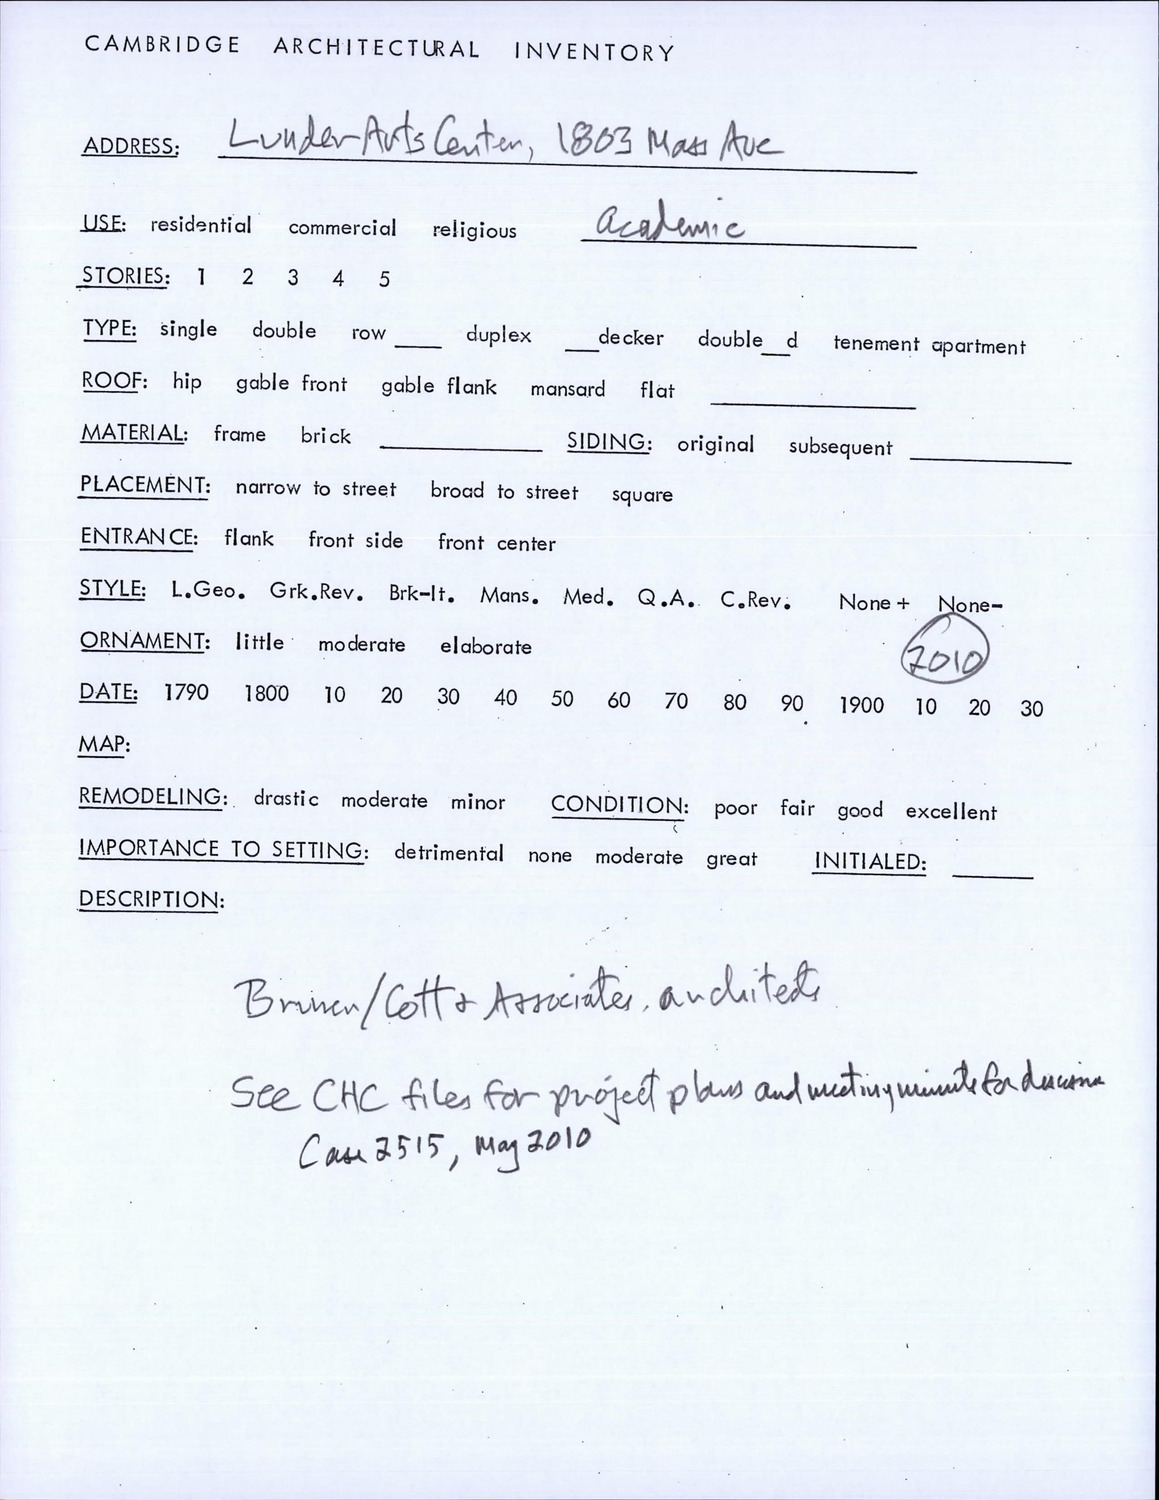 CAMBRIDGE ARCHITECTURAL INVENTORY
ADDRESS: Lunder Arts Center, 1803 Mass Ave
USE: residential commercial religious Academic
STORIES: 1 2 3 4 5
TYPE: single double row ____ duplex ___decker double__d tenement apartment
ROOF: hip gable front gable flank mansard flat
MATERIAL: frame brick ____ SIDING: original subsequent ____
PLACEMENT: narrow to street broad to street square
ENTRANCE: flank front side front center
STYLE: L.Geo. Grk.Rev. Brk-It. Mans. Med. Q.A. C.Rev. None + None-
ORNAMENT: little moderate elaborate
2010
DATE: 1790 1800 10 20 30 40 50 60 70 80 90 1900 10 20 30
MAP:
REMODELING: drastic moderate minor CONDITION: poor fair good excellent
IMPORTANCE TO SETTING: detrimental none moderate great INITIALED: ____
DESCRIPTION:
Bruner/Cott & Associates, architects
See CHC files for project plans and meeting minutes for
Case 2515, May 2010